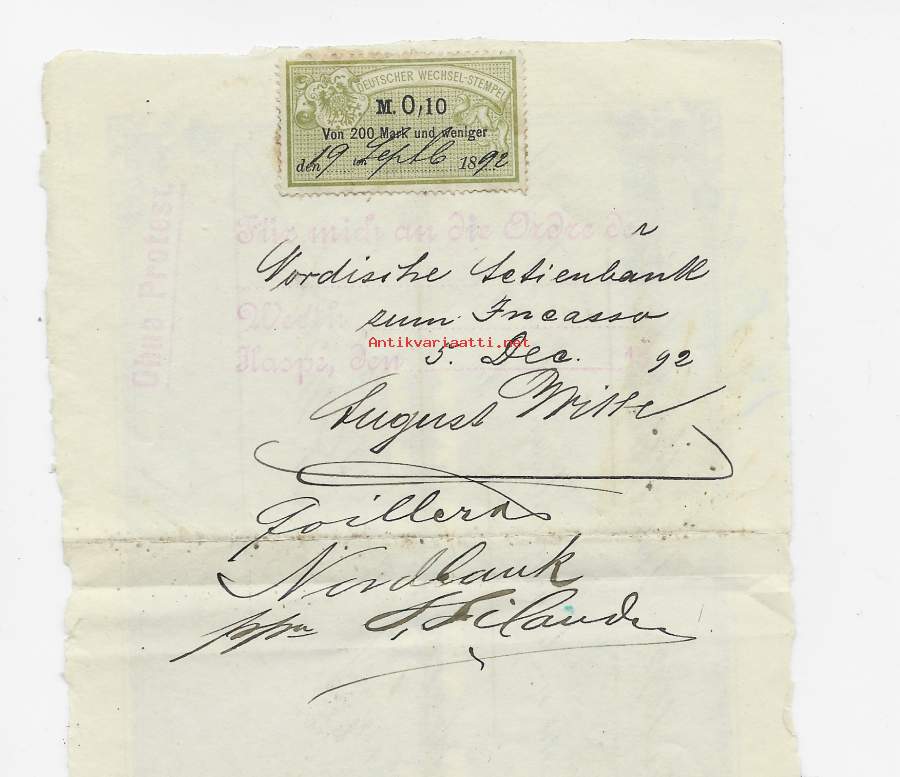 DEUTSCHER WECHSEL-STEMPEL
M. 0,10
Von 200 Mark und weniger
den 19 ten Septb 1892
Ohne Protest
Für mich an die Ordre der
Nordische Actienbank
zum Incasso
Werth
Antikvariaatti.net
Haspe, den 5. Dec. 1 92
August Witte
Nordbank
ppa